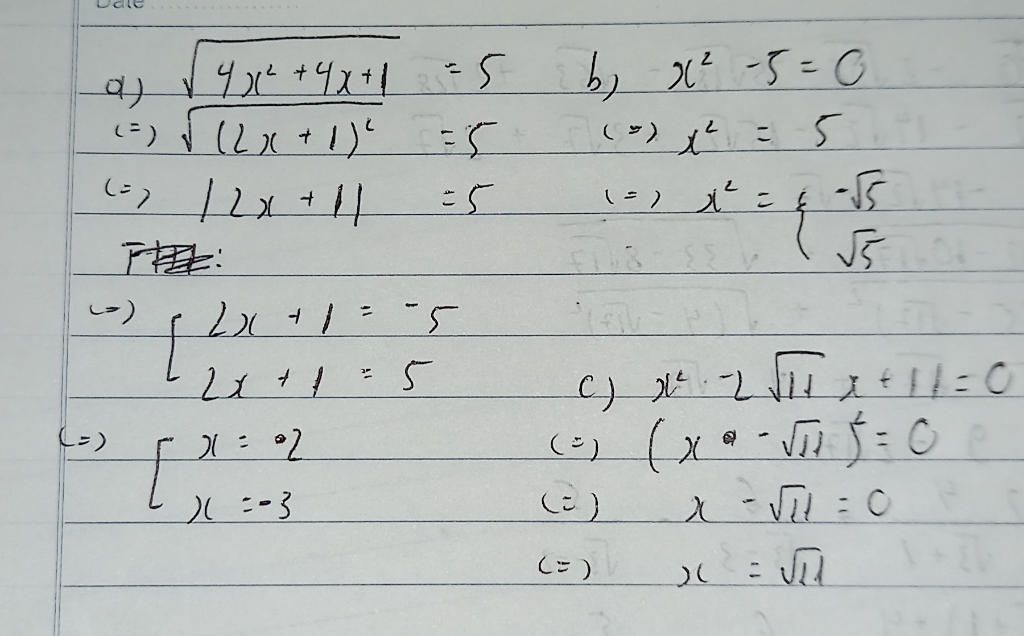 Date
a) √(4x² + 4x + 1) = 5
(=) √((2x + 1)²) = 5
(=) |2x + 1| = 5
(=) [ 2x + 1 = -5
2x + 1 = 5
(=) [ x = 2
x = -3
b) x² - 5 = 0
(=) x² = 5
(=) x² = { -√5
√5
c) x² - 2√11 x + 11 = 0
(=) (x - √11)² = 0
(=) x - √11 = 0
(=) x = √11